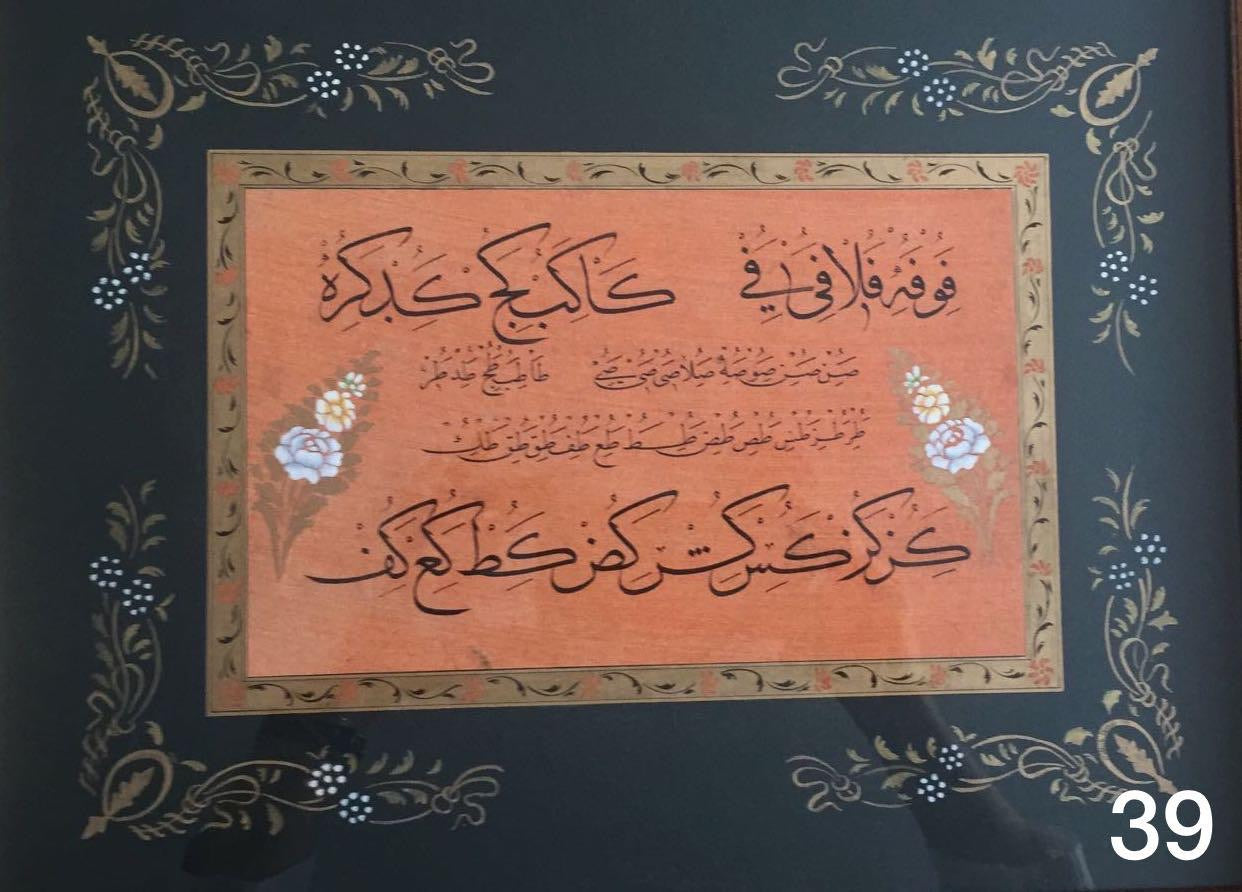 فو فه فلا فى في كا كب كج كد كره
صن صن صو صه صلا صى صى طا طب طج طد طر
طر طز طس طص طض طط طع طف طو طق
كز كز كس كش كض كط كع كف
39